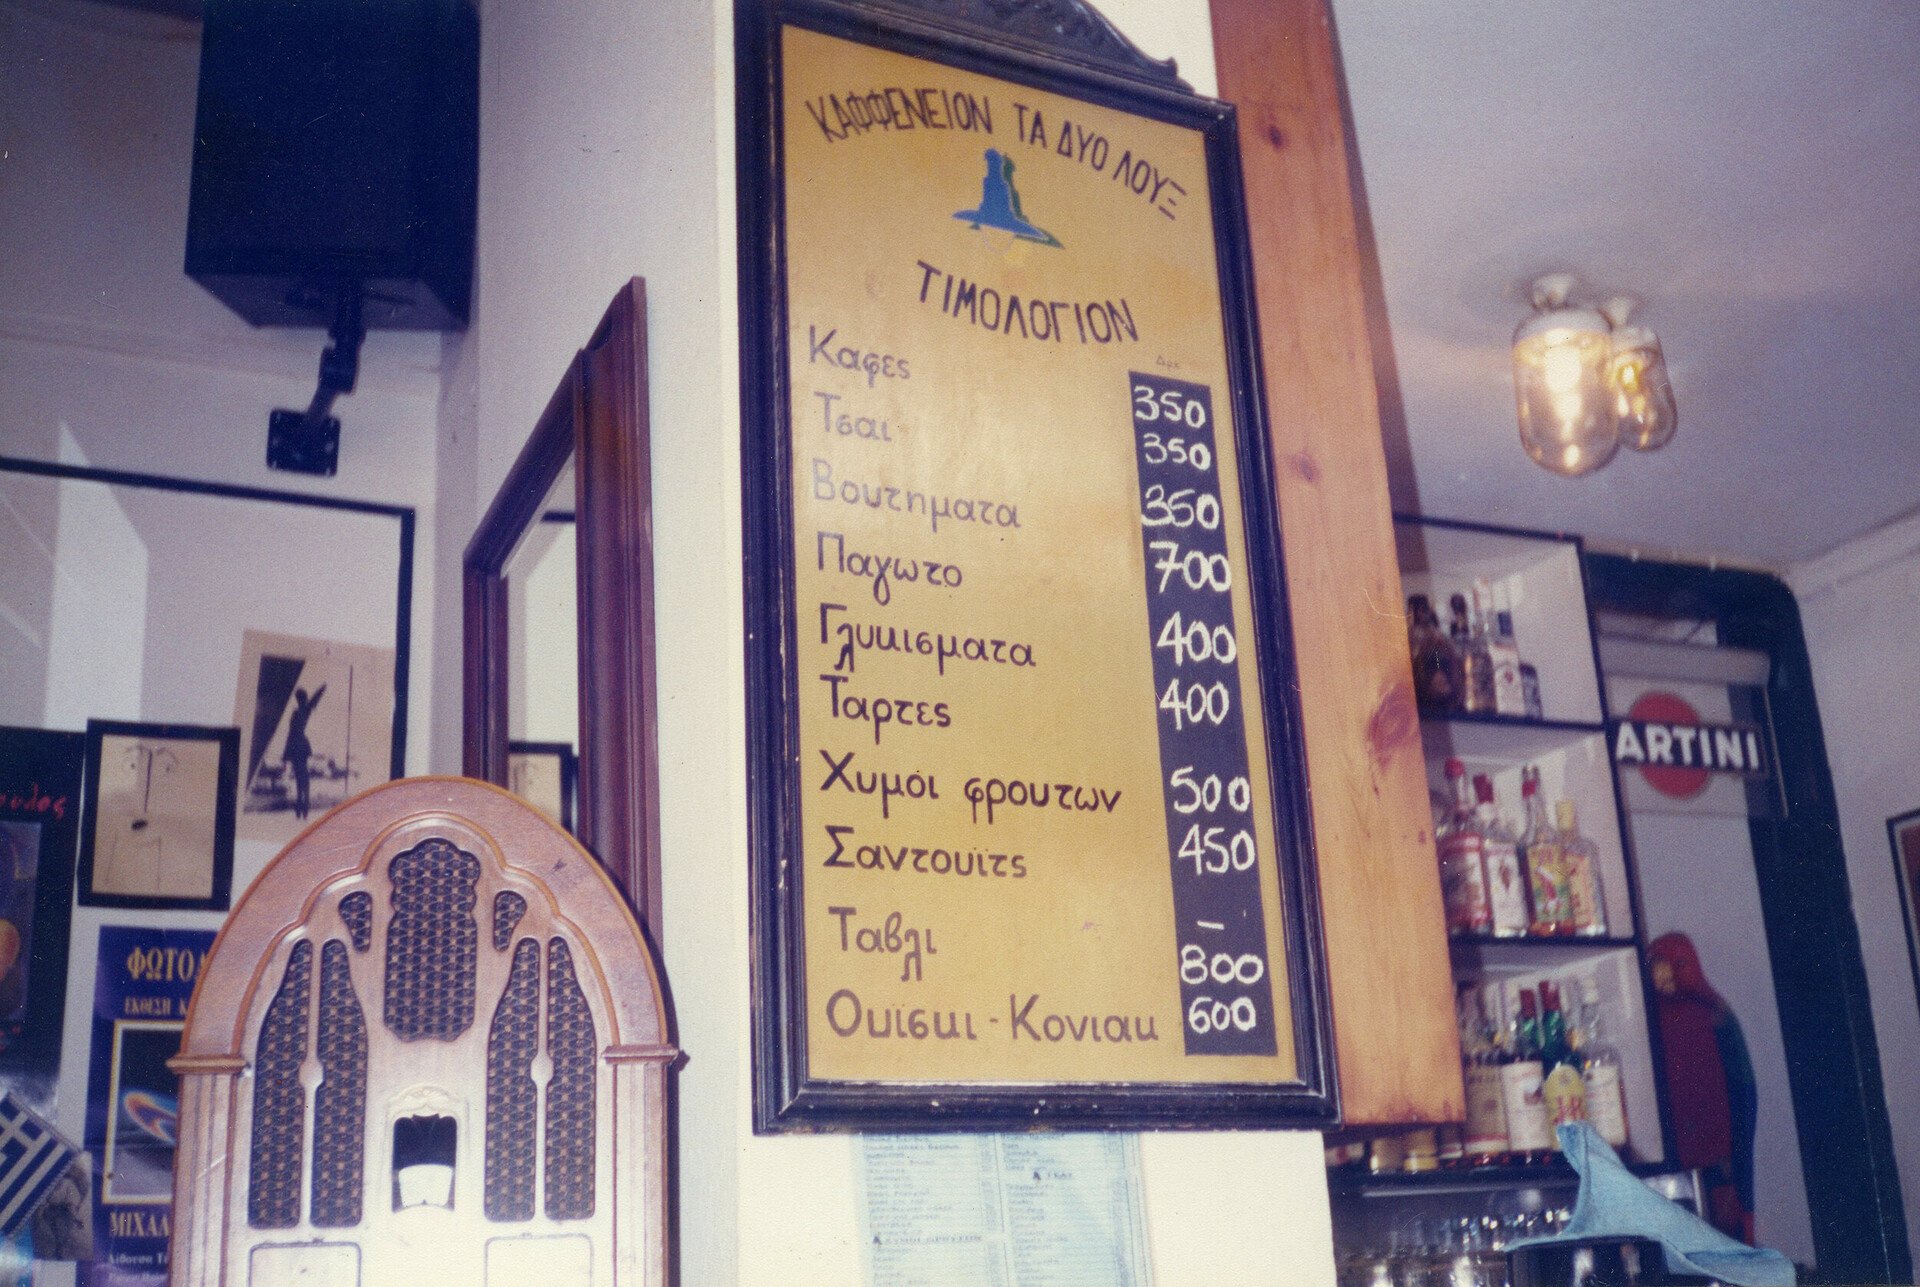 ΚΑΦΦΕΝΕΙΟΝ ΤΑ ΔΥΟ ΛΟΥΞ
ΤΙΜΟΛΟΓΙΟΝ
Δρχ
Καφες 350
Τσαι 350
Βουτηματα 350
Παγωτο 700
Γλυκισματα 400
Ταρτες 400
Χυμοι φρουτων 500
Σαντουϊτς 450
Ταβλι –
800
Ουϊσκι - Κονιακ 600
ARTINI
J&B
ΦΩΤΟ
ΕΚΘΕΣΗ Κ
ΜΙΧΑΛ